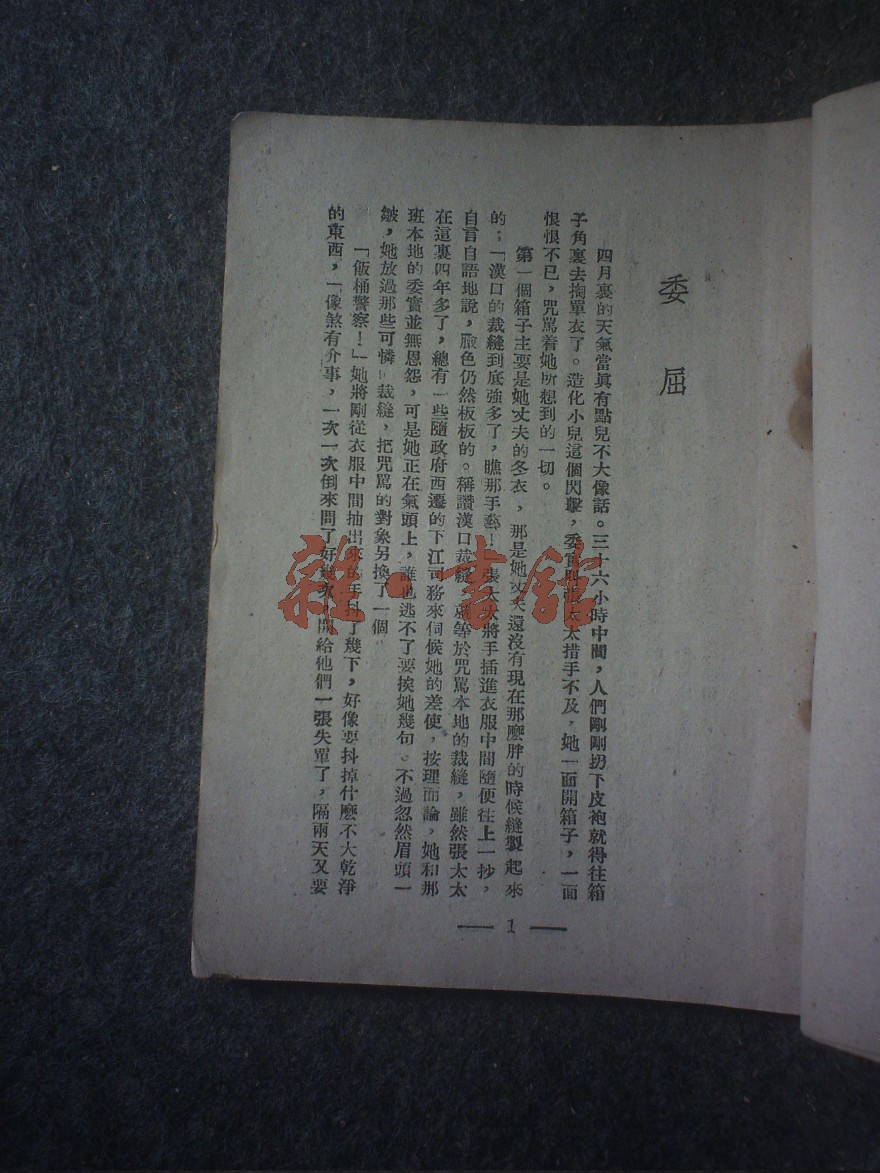 委屈
四月裏的天氣當眞有點兒不大像話。三十六小時中間，人們剛剛拐下皮袍就得往箱
子角裏去掏單衣了。造化小兒這個閃擊，委實叫張太太措手不及，她一面開箱子，一面
恨恨不已，咒罵着她所想到的一切。
第一個箱子主要是她丈夫的冬衣，那是她丈夫還沒有現在那麼胖的時候縫製起來
的；「漢口的裁縫到底強多了，瞧那手藝！張太太將手插進衣服中間隨便往上一抄，
自言自語地說，臉色仍然板板的。稱讚漢口裁縫，就等於咒罵本地的裁縫，雖然張太太
在這裏四年多了，總有一些隨政府西遷的下江司務來伺候她的差使，按理而論，她和那
班本地的委實並無恩怨，可是她正在氣頭上，誰也逃不了要挨她幾句。不過忽然眉頭一
皺，她放過那些可憐裁縫，把咒罵的對象另換了一個
「飯桶警察！」她將剛從衣服中間抽出來的手抖了幾下，好像要抖掉什麼不大乾淨
的東西，「像煞有介事，一次一次倒來問了好幾次，開給他們一張失單了，隔兩天又要
— 1 —
雜·書館